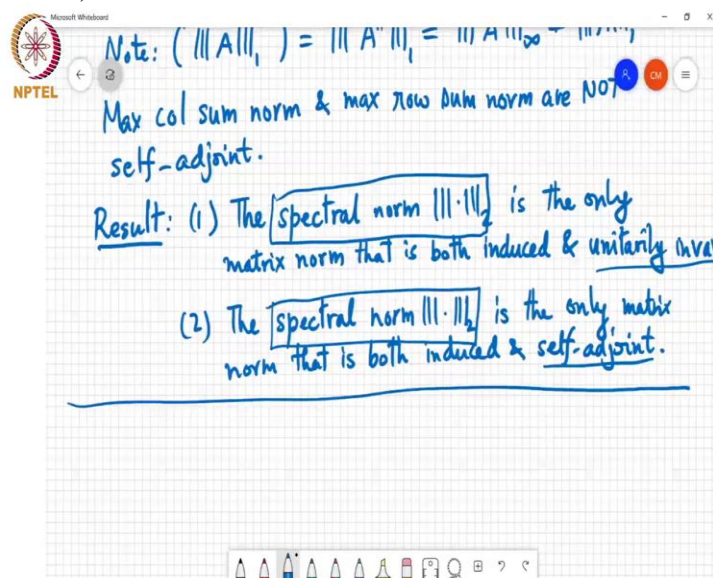 Microsoft Whiteboard
NPTEL
CM
Note: (|||A|||₁ ) = |||A* |||₁ = |||A|||∞
Max col sum norm & max row sum norm are NOT
self-adjoint.
Result: (1) The spectral norm |||·|||₂ is the only
matrix norm that is both induced & unitarily inva
(2) The spectral norm |||·|||₂ is the only matrix
norm that is both induced & self-adjoint.